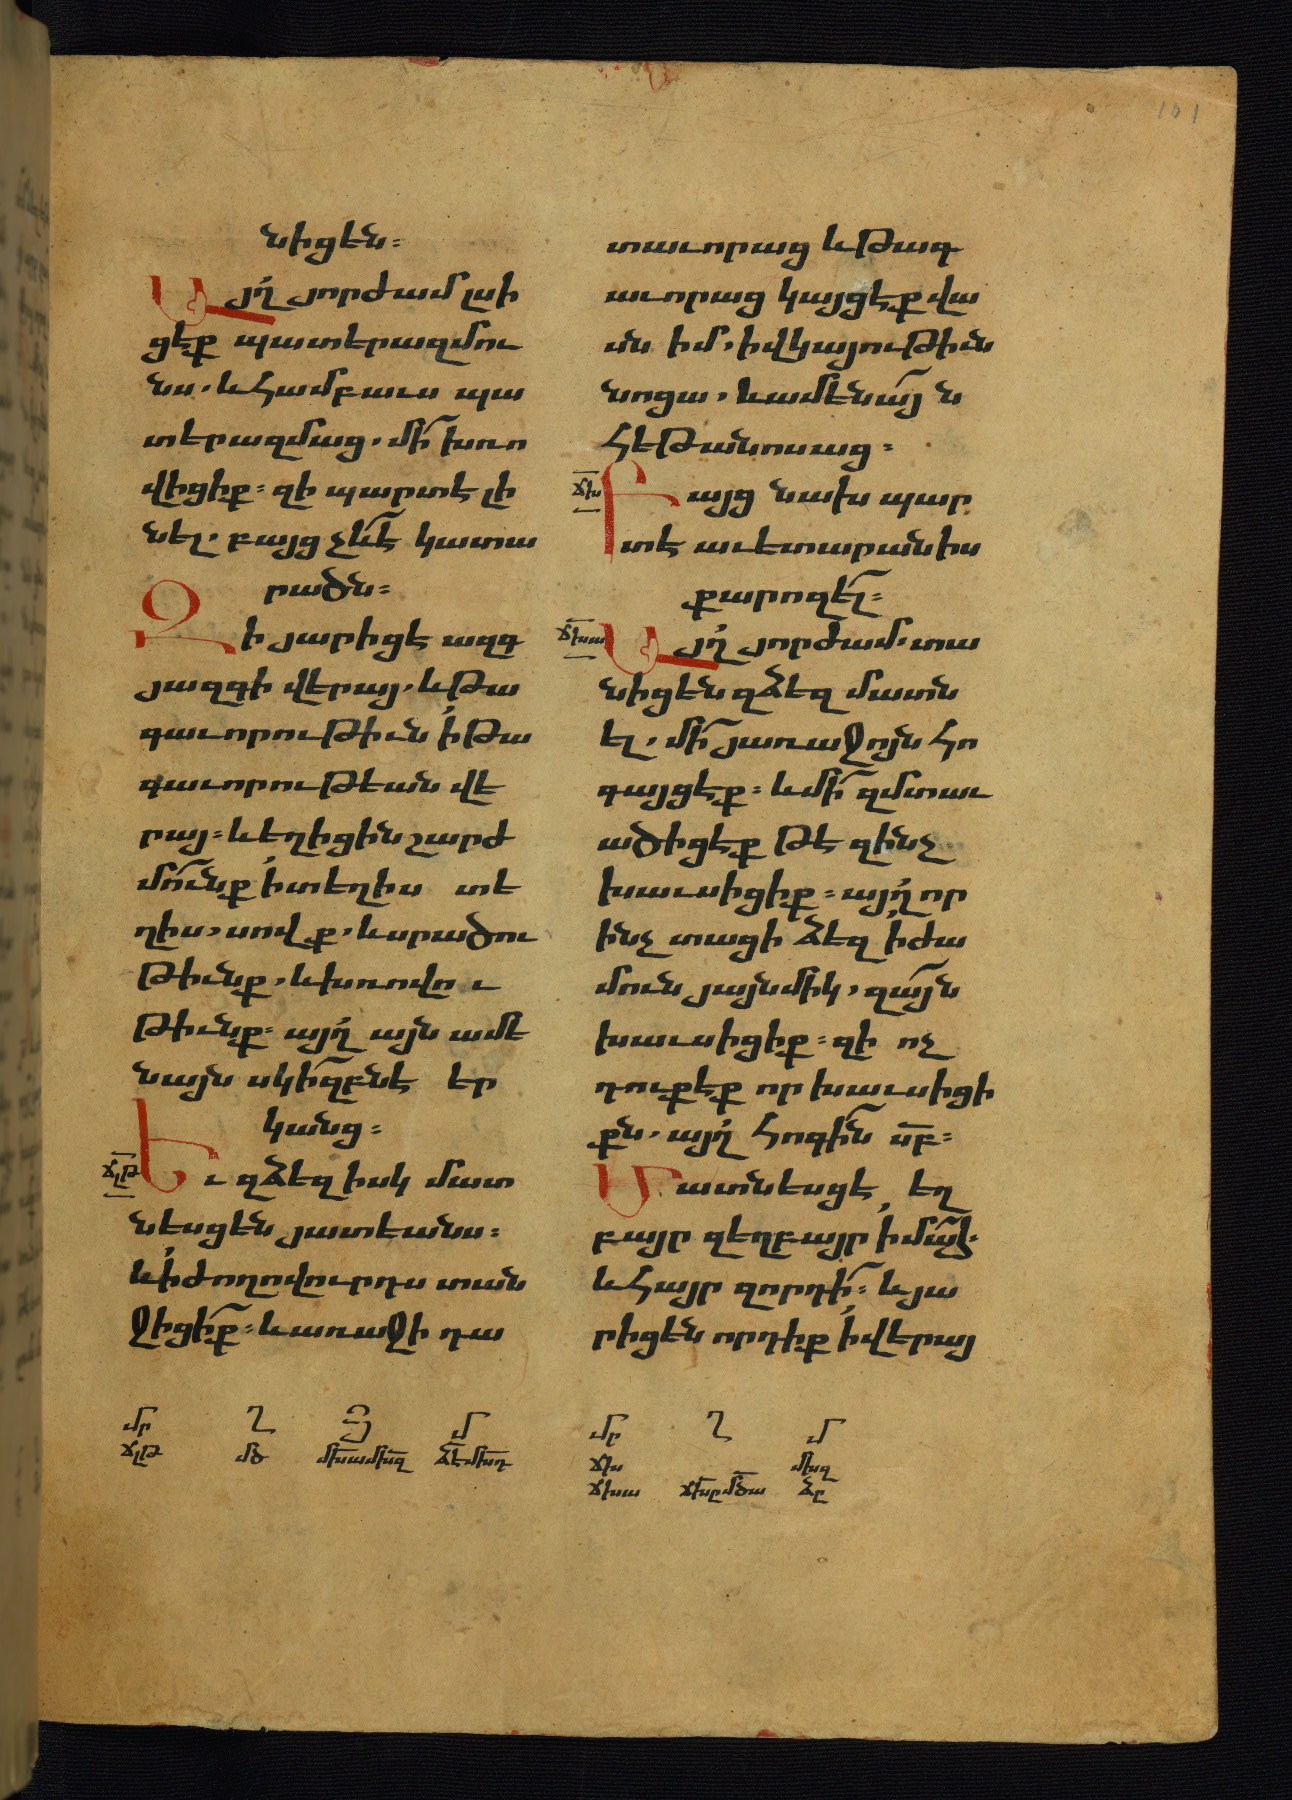 101
նիցեն։
Այղ յորժամ լսի
ցէք պատերազմու
նս, և համբաւս պա
տերազմաց, մի՛ խռո
վիցիք։ զի պարտէ լի
նել, բայց չև՛է կատա
րածն։
Զի յարիցէ ազգ
յազգի վերայ, և թա
գաւորութիւն ի թա
գաւորութեան վե
րայ։ և եղիցին շարժ
մո՛ւնք ի տեղիս տե
ղիս, սովք, և սրածու
թիւնք, և խռովու
թիւնք։ այղ այն ամե
նայն սկիզբնէ եր
կանց։
ճլթ
Եւ զձեզ իսկ մատ
նեսցեն յատեանս։
և ի ժողովուրդս տան
ջիցի՛ք։ և առաջի դա
տաւորաց և թագ
աւորաց կայցէք վա
սն իմ, ի վկայութիւն
նոցա, և ամենա՛յն
հեթանոսաց։
ճխ
Բայց նախ պար
տէ աւետարանիս
քարոզե՛լ։
ճխա
Այղ յորժամ տա
նիցեն զձեզ մատն
ել, մի՛ յառաջոյն հո
գայցէք։ և մի՛ զմտաւ
ածիցէք թէ զինչ
խաւսիցիք։ այղ որ
ինչ տացի ձեզ ի ժա
մուն յայնմիկ, զա՛յն
խաւսիցիք։ զի ոչ
դուքէք որ խաւսիցի
քն, այղ հոգին սբ։
Մատնեսցէ եղ
բայր զեղբայր ի մա՛հ.
և հայր զորդի՛։ և յա
րիցեն որդիք ի վերայ
մր Ղ Յ մ
ճլթ մծ մխամխզ ձէմխդ
մր Ղ մ
ճխ մխզ
ճխա ճխըմծա ձը